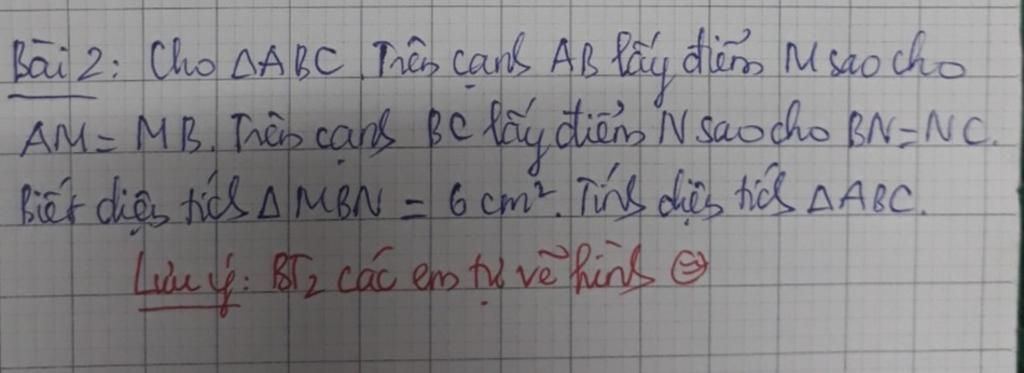 Bài 2: Cho ΔABC. Trên cạnh AB lấy điểm M sao cho
AM = MB. Trên cạnh BC lấy điểm N sao cho BN = NC.
Biết diện tích Δ MBN = 6 cm². Tính diện tích ΔABC.
Lưu ý: BT2 các em tự vẽ hình